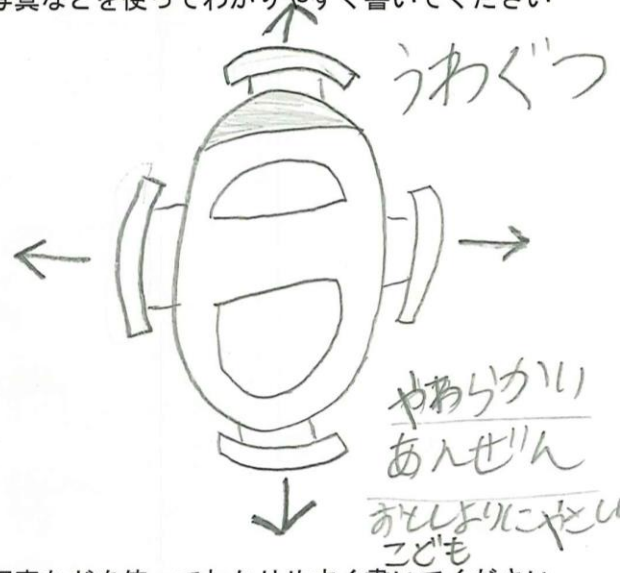 写真などを使ってわかりやすく書いてください
うわぐつ
やわらかい
あんぜん
おとしよりにやさしい
こども